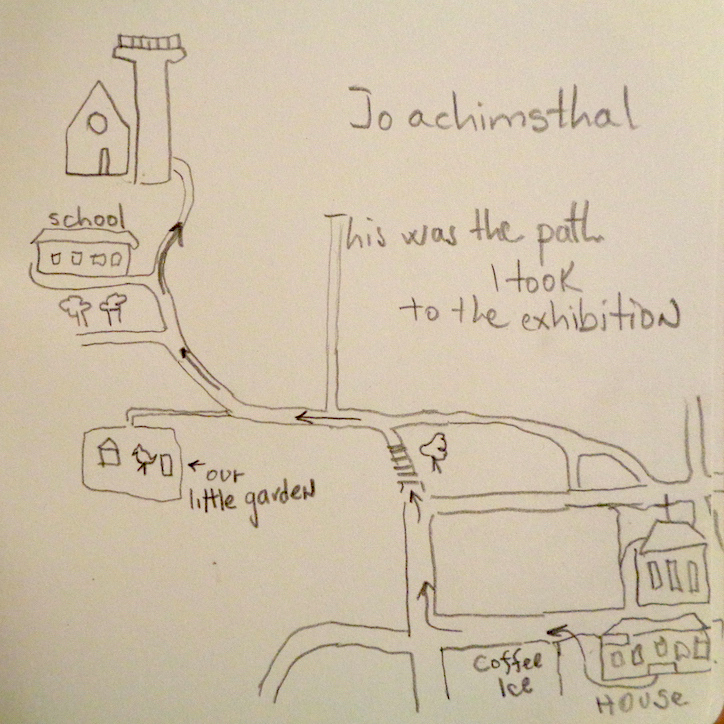 Joachimsthal
This was the path
I took
to the exhibition
school
← our
little garden
Coffee
Ice
House